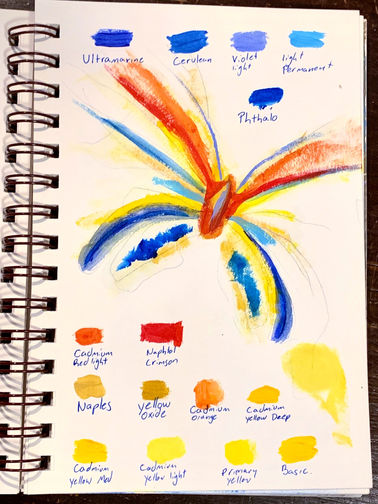 Ultramarine Cerulean Violet light Light Permanent
Phthalo
Cadmium Red light Naphtol Crimson
Naples Yellow Oxide Cadmium Orange Cadmium Yellow Deep
Cadmium Yellow Med Cadmium Yellow light Primary Yellow Basic.